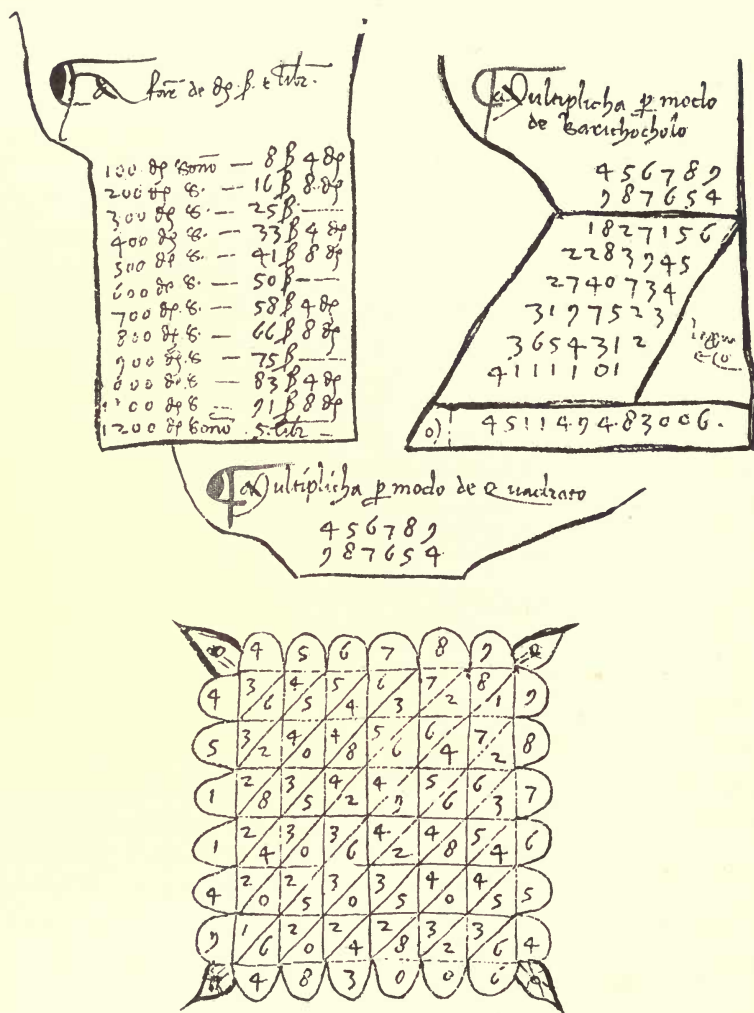 de dp β. e libr.
100 dp sono — 8 β 4 dp
200 dp s. — 16 β 8 dp
300 dp s. — 25 β —
400 dp s. — 33 β 4 dp
500 dp s. — 41 β 8 dp
600 dp s. — 50 β —
700 dp s. — 58 β 4 dp
800 dp s. — 66 β 8 dp
900 dp s. — 75 β —
1000 dp s. — 83 β 4 dp
1100 dp s — 91 β 8 dp
1200 dp sono 5. libr —
Multiplicha p modo
de Barichocholo
456789
987654
1827156
2283945
2740734
3197523
3654312
4111101
0) 4511494.83006.
Multiplicha p modo de Quadrato
456789
987654
4 5 6 7 8 9
4 3 6 4 5 5 4 6 3 7 2 8 1 9
5 3 2 4 0 4 8 5 6 6 4 7 2 8
1 2 8 3 5 4 2 4 9 5 6 6 3 7
1 2 4 3 0 3 6 4 2 4 8 5 4 6
4 2 0 2 5 3 0 3 5 4 0 4 5 5
9 1 6 2 0 2 4 2 8 3 2 3 6 4
4 8 3 0 0 6